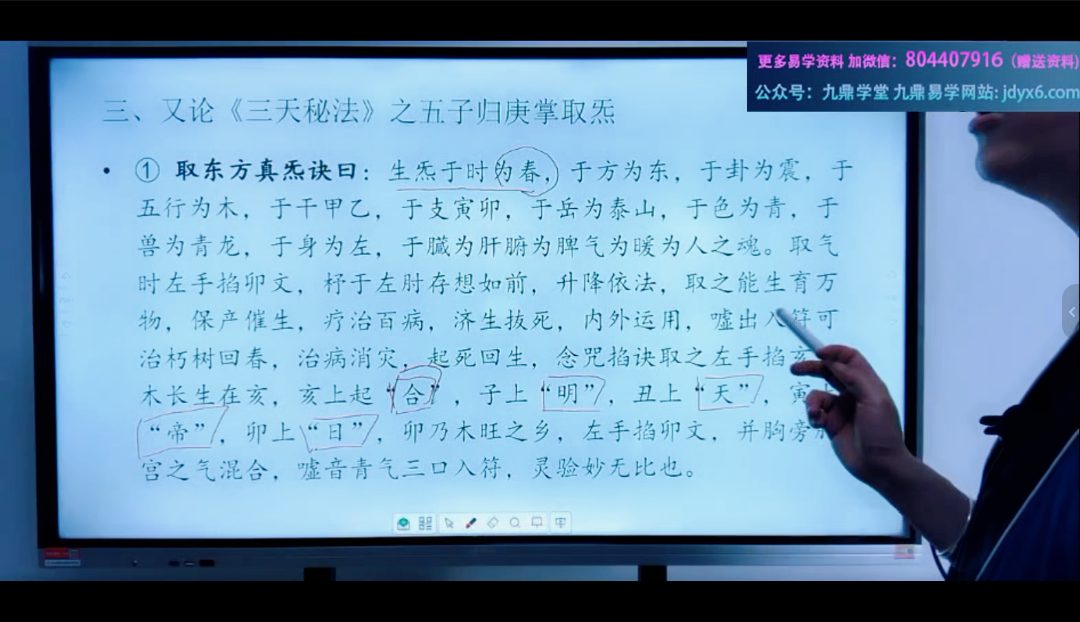 更多易学资料 加微信：804407916（赠送资料)
公众号：九鼎学堂 九鼎易学网站: jdyx6.com
三、又论《三天秘法》之五子归庚掌取炁
• ① 取东方真炁诀曰：生炁于时为春，于方为东，于卦为震，于
五行为木，于干甲乙，于支寅卯，于岳为泰山，于色为青，于
兽为青龙，于身为左，于臓为肝腑为脾气为暖为人之魂。取气
时左手掐卯文，杼于左肘存想如前，升降依法，取之能生育万
物，保产催生，疗治百病，济生拔死，内外运用，嘘出入符可
治朽树回春，治病消灾，起死回生，念咒掐诀取之左手掐亥
木长生在亥，亥上起“合”，子上“明”，丑上“天”，寅上
“帝”，卯上“日”，卯乃木旺之乡，左手掐卯文，并胸傍
宫之气混合，嘘音青气三口入符，灵验妙无比也。